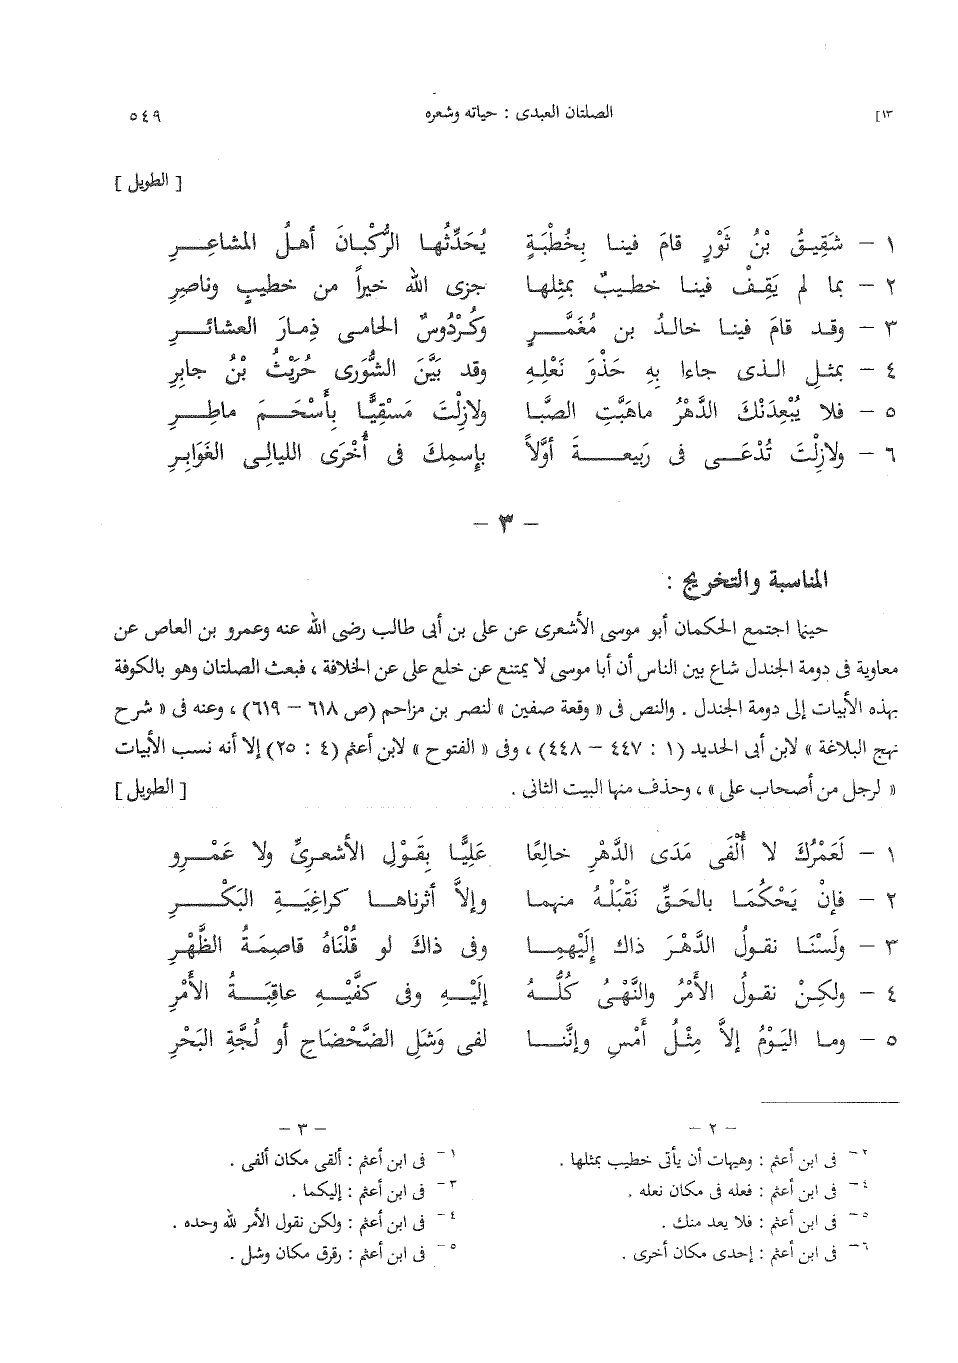 ١٣] الصلتان العبدى : حياته وشعره ٥٤٩
[ الطويل ]
١ – شَقِيقُ بْنُ ثَوْرٍ قامَ فينا بِخُطْبَةٍ يُحَدِّثُها الرُّكْبانَ أهلُ المشاعِرِ
٢ – بما لم يَقِفْ فينا خطيبٌ بمثلِها جزى الله خيراً من خطيبٍ وناصِرِ
٣ – وقد قامَ فينا خالدُ بن مُعَمَّرٍ وكُرْدُوسٌ الحامى ذِمارَ العشائرِ
٤ – بمثلِ الذى جاءا بِهِ حَذْوَ نَعْلِهِ وقد بَيَّنَ الشُّورى حُرَيْثُ بْنُ جابِرِ
٥ – فلا يُبْعِدَنْكَ الدَّهْرُ ماهَبَّتِ الصَّبا ولازِلْتَ مَسْقِيًّا بِأَسْحَمَ ماطِرِ
٦ – ولازِلْتَ تُدْعَى فى رَبيعةَ أوَّلاً بإسمِكَ فى أُخْرَى الليالِى الغَوابِرِ
– ٣ –
المناسبة والتخريج :
حينما اجتمع الحكمان أبو موسى الأشعرى عن على بن أبى طالب رضى الله عنه وعمرو بن العاص عن
معاوية فى دومة الجندل شاع بين الناس أن أبا موسى لا يمتنع عن خلع على عن الخلافة ، فبعث الصلتان وهو بالكوفة
بهذه الأبيات إلى دومة الجندل . والنص فى « وقعة صفين » لنصر بن مزاحم (ص ٦١٨ – ٦١٩) ، وعنه فى « شرح
نهج البلاغة » لابن أبى الحديد (١ : ٤٤٧ – ٤٤٨) ، وفى « الفتوح » لابن أعثم (٤ : ٢٥) إلا أنه نسب الأبيات
« لرجل من أصحاب على » ، وحذف منها البيت الثانى . [ الطويل ]
١ – لَعَمْرُكَ لا أُلْفَى مَدَى الدَّهْرِ خالِعًا عَلِيًّا بِقَوْلِ الأشعرِىِّ ولا عَمْرِو
٢ – فإنْ يَحْكُمَا بالحَقِّ نَقْبَلْهُ منهما وإلاَّ أثرناها كراغِيَةِ البَكْرِ
٣ – ولَسْنَا نقولُ الدَّهْرَ ذاكَ إلَيْهِما وفى ذاكَ لو قُلْنَاهُ قاصِمَةُ الظَّهْرِ
٤ – ولكِنْ نقولُ الأمْرُ والنَّهْىُ كُلُّهُ إلَيْهِ وفى كفَّيْهِ عاقِبَةُ الأَمْرِ
٥ – وما اليَوْمُ إلاَّ مِثْلُ أَمْسِ وإنَّنا لفى وَشَلِ الضَّحْضَاحِ أو لُجَّةِ البَحْرِ
– ٢ –
٢– فى ابن أعثم : وهيهات أن يأتى خطيب بمثلها .
٤– فى ابن أعثم : فعله فى مكان نعله .
٥– فى ابن أعثم : فلا يعد منك .
٦– فى ابن أعثم : إحدى مكان أخرى .
– ٣ –
١– فى ابن أعثم : ألقى مكان ألفى .
٣– فى ابن أعثم : إليكما .
٤– فى ابن أعثم : ولكن نقول الأمر لله وحده .
٥– فى ابن أعثم : رقرق مكان وشل .